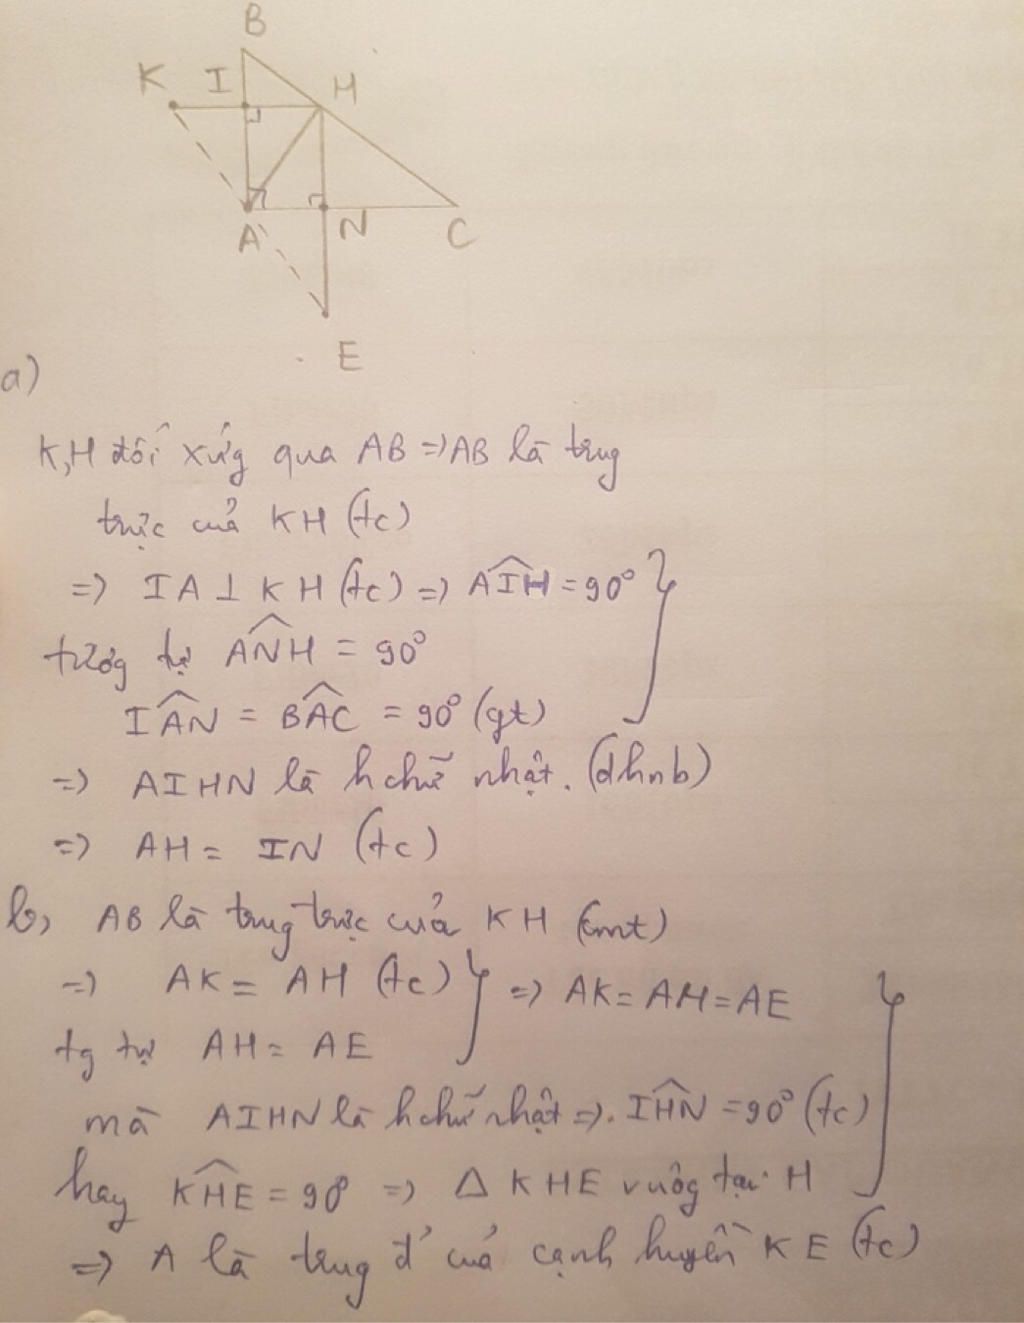 B
K I H
A N C
E
a)
K,H đối xứg qua AB => AB là trug
trực của KH (tc)
=> IA ⊥ KH (tc) => AIH = 90° }
tươg tự ANH = 90°
IAN = BAC = 90° (gt)
=> AIHN là hchữ nhật. (dhnb)
=> AH = IN (tc)
b, AB là trug trực của KH (cmt)
=> AK = AH (tc) } => AK = AH = AE }
tg tự AH = AE
mà AIHN là hchữ nhật =>. IHN = 90° (tc)
hay KHE = 90° => Δ KHE vuôg tại H
=> A là trug đ' của cạnh huyền KE (tc)